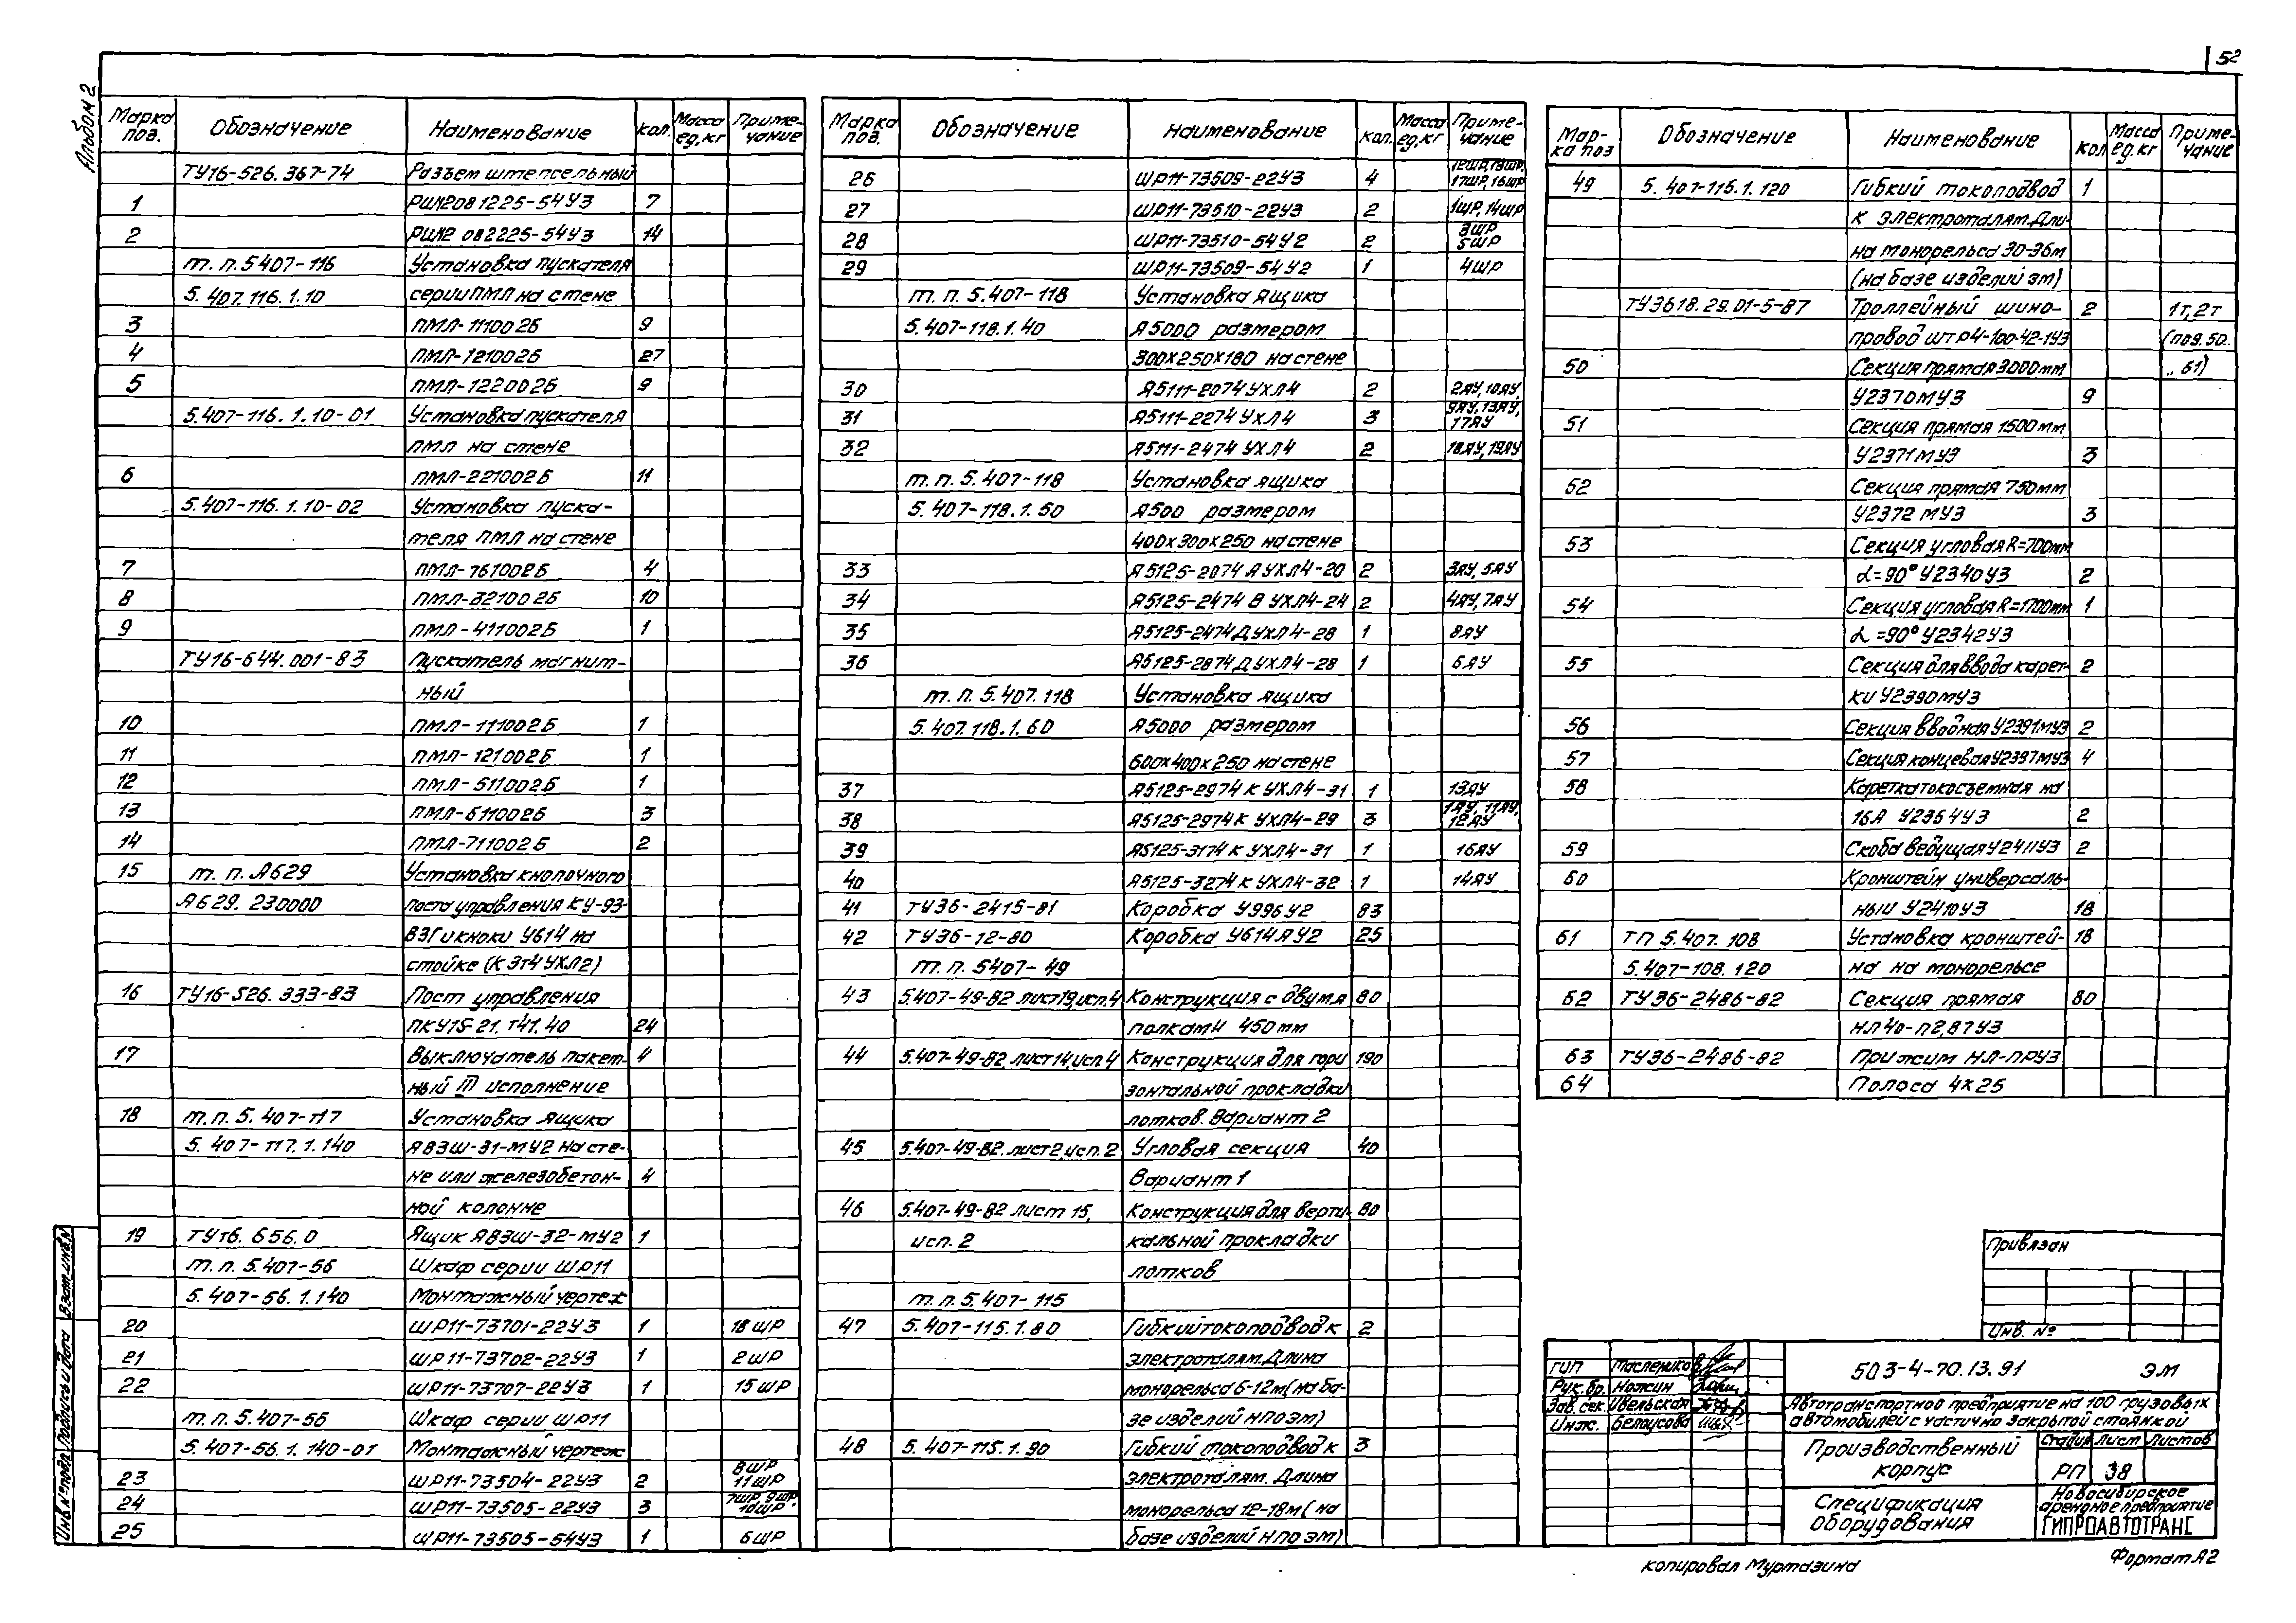 52
Альбом 2
Марка поз. Обозначение Наименование кол. Масса ед, кг Примечание
ТУ16-526.367-74 Разъем штепсельный
1 РШ2081225-54У3 7
2 РШ2 082225-54У3 14
т. п. 5407-116 Установка пускателя
5.407.116.1.10 серии ПМЛ на стене
3 ПМЛ-111002Б 9
4 ПМЛ-121002Б 27
5 ПМЛ-122002Б 9
5.407-116.1.10-01 Установка пускателя
ПМЛ на стене
6 ПМЛ-221002Б 11
5.407-116.1.10-02 Установка пуска-
теля ПМЛ на стене
7 ПМЛ-761002Б 4
8 ПМЛ-321002Б 10
9 ПМЛ-411002Б 1
ТУ16-644.001-83 Пускатель магнит-
ный
10 ПМЛ-111002Б 1
11 ПМЛ-121002Б 1
12 ПМЛ-511002Б 1
13 ПМЛ-611002Б 3
14 ПМЛ-711002Б 2
15 т. п. А629 Установка кнопочного
А629.230000 поста управления КУ-93-
ВЗГ и кноки У614 на
стойке (КЭт4УХЛ2)
16 ТУ16-526.333-83 Пост управления
ПКУ15-21.т41.40 24
17 Выключатель пакет- 4
ный III исполнение
18 т.п. 5.407-117 Установка ящика
5.407-117.1.140 ЯВЗШ-31-МУ2 на сте-
не или железобетон- 4
ной колонне
19 ТУ16.656.0 Ящик ЯВЗШ-32-МУ2 1
т.п. 5.407-56 Шкаф серии ШР11
5.407-56.1.140 Монтажный чертеж
20 ШР11-73701-22У3 1 18ШР
21 ШР11-73702-22У3 1 2ШР
22 ШР11-73707-22У3 1 15ШР
т.п. 5.407-56 Шкаф серии ШР11
5.407-56.1.140-01 Монтажный чертеж
23 ШР11-73504-22У3 2 8ШР 11ШР
24 ШР11-73505-22У3 3 7ШР, 9ШР, 10ШР
25 ШР11-73505-54У3 1 6ШР
Марка поз. Обозначение Наименование кол. Масса ед, кг Примечание
26 ШР11-73509-22У3 4 12ШР, 13ШР, 17ШР, 16ШР
27 ШР11-73510-22У3 2 1ШР, 14ШР
28 ШР11-73510-54У2 2 3ШР 5ШР
29 ШР11-73509-54У2 1 4ШР
т. п. 5.407-118 Установка ящика
5.407-118.1.40 Я5000 размером
300х250х180 на стене
30 Я5111-2074УХЛ4 2 2ЯУ, 10ЯУ,
31 Я5111-2274УХЛ4 3 9ЯУ, 13ЯУ, 17ЯУ
32 Я5111-2474УХЛ4 2 18ЯУ, 19ЯУ
т. п. 5.407-118 Установка ящика
5.407-118.1.50 Я500 размером
400х300х250 на стене
33 Я5125-2074 АУХЛ4-20 2 3ЯУ, 5ЯУ
34 Я5125-2474 В УХЛ4-24 2 4ЯУ, 7ЯУ
35 Я5125-2474ДУХЛ4-28 1 8ЯУ
36 Я5125-2874ДУХЛ4-28 1 6ЯУ
т. п. 5.407.118 Установка ящика
5.407.118.1.60 Я5000 размером
600х400х250 на стене
37 Я5125-2974 К УХЛ4-31 1 13ЯУ
38 Я5125-2974 К УХЛ4-29 3 1ЯУ, 11ЯУ, 12ЯУ
39 Я5125-3174 К УХЛ4-31 1 16ЯУ
40 Я5125-3274 К УХЛ4-32 1 14ЯУ
41 ТУ36-2415-81 Коробка У996У2 83
42 ТУ36-12-80 Коробка У614АУ2 25
т. п. 5407-49
43 5.407-49-82 лист19, исп.4 Конструкция с двумя 80
полками 450мм
44 5.407-49-82 лист14, исп.4 Конструкция для гори 190
зонтальной прокладки
лотков. Вариант 2
45 5.407-49-82. лист2, исп.2 Угловая секция 40
Вариант 1
46 5.407-49-82 лист 15, Конструкция для верти- 80
исп. 2 кальной прокладки
лотков
т. п. 5.407-115
47 5.407-115.1.80 Гибкий токоподвод к 2
электроталям. Длина
монорельса 6-12м (на ба-
зе изделий НПО ЭМ)
48 5.407-115.1.90 Гибкий токоподвод к 3
электроталям. Длина
монорельса 12-18м (на
базе изделий НПО ЭМ)
Мар-ка поз Обозначение Наименование кол Масса ед. кг Приме-чание
49 5.407-115.1.120 Гибкий токоподвод 1
к электроталям. Дли-
на монорельса 30-36м
(на базе изделий эм)
ТУ3618.29.01-5-87 Троллейный шино- 2 1т, 2т
провод ШТР4-100-42-1У3 (поз. 50.
50 Секция прямая 3000мм .. 61)
У2370МУ3 9
51 Секция прямая 1500мм
У2371МУ3 3
52 Секция прямая 750мм
У2372МУ3 3
53 Секция угловая R=700мм
α=90° У2340У3 2
54 Секция угловая R=1700мм 1
α=90° У2342У3
55 Секция для ввода карет- 2
ки У2390МУ3
56 Секция вводная У2391МУ3 2
57 Секция концевая У2397МУ3 4
58 Каретка токосъемная на
16А У2364У3 2
59 Скоба ведущая У2411У3 2
60 Кронштейн универсаль-
ный У2410У3 18
61 ТП 5.407.108 Установка кронштей- 18
5.407-108.120 на на монорельсе
62 ТУ36-2486-82 Секция прямая 80
НЛ40-П2,87У3
63 ТУ36-2486-82 Прижим НЛ-ПРУ3
64 Полоса 4х25
Привязан
Инв. №
ГИП Маслеников
Рук. бр. Ножкин
Зав. сек. Ивельская
Инж. Белоусова
503-4-70.13.91 ЭМ
Автотранспортное предприятие на 100 грузовых
автомобилей с частично закрытой стоянкой
Производственный
корпус
Стадия Лист Листов
РП 38
Спецификация
оборудования
Новосибирское
арендное предприятие
ГИПРОАВТОТРАНС
Взам. инв. №
Подпись и дата
Инв. № подл
копировал Муртазина
Формат А2